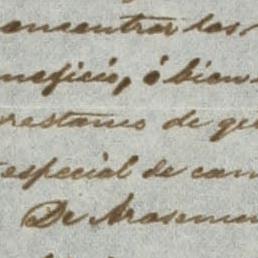 encontrar los
neficio, ó bien
restamo de ge
especial de cam
De Arosemen